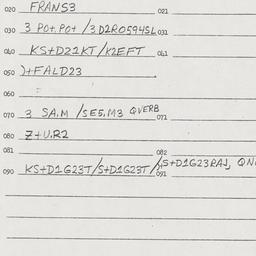 020 FRANS3 021
030 3 POt. POt /3D2R0594SL 031
040 KS+D22KT/K2EFT 041
050 )+FALD23
060
070 3 SA.M /SE5.M3 QVERB 071
080 Z+U.R2
081 082
090 KS+D1G23T/S+D1G23T/S+D1G23RAJ, QN 091